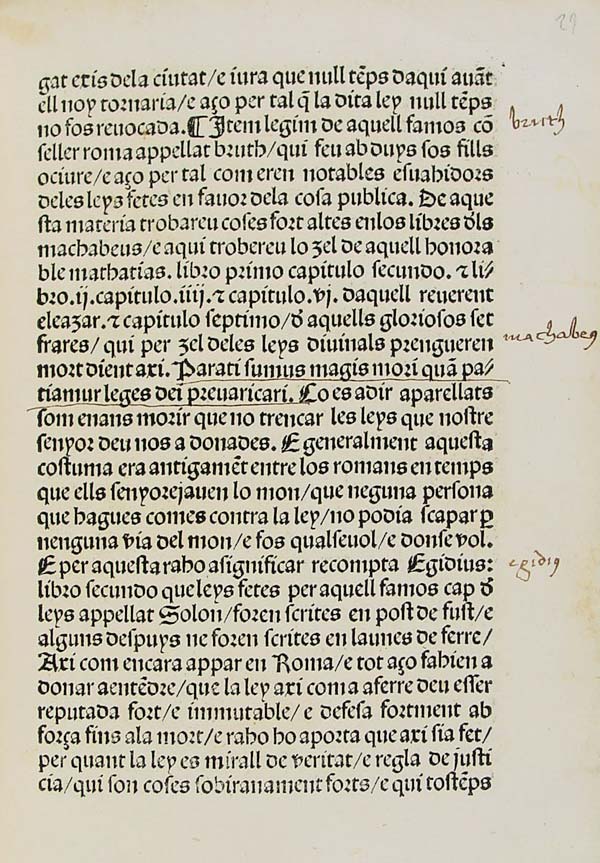 29
gat exis dela ciutat/e iura que null tẽps daqui auãt
ell noy tornaria/e aço per tal q̃ la dita ley null tẽps
no fos reuocada.¶Item legim de aquell famos cõ
bruth
seller roma appellat bruth/qui feu ab duys sos fills
ociure/e aço per tal com eren notables esuahidors
deles leys fetes en fauor dela cosa publica. De aque
sta materia trobareu coses fort altes enlos libres ďls
machabeus/e aqui trobereu lo zel de aquell honora
ble mathatias. libro primo capitulo secundo. ⁊ li/
bro.ij.capitulo.iiij.⁊ capitulo.vj. daquell reuerent
eleazar.⁊ capitulo septimo/ď aquells gloriosos set
frares/ qui per zel deles leys diuinals prengueren
machabeꝯ
mort dient axi. Parati sumus magis mori quã pa/
tiamur leges dei preuaricari. Co es adir aparellats
som enans morir que no trencar les leys que nostre
senyor deu nos a donades. E generalment aquesta
costuma era antigamẽt entre los romans en temps
que ells senyorejauen lo mon/que neguna persona
que hagues comes contra la ley/no podia scapar ꝑ
nenguna via del mon/e fos qualseuol/e donse vol.
E per aquesta raho asignificar recompta Egidius:
egidiꝯ
libro secundo que leys fetes per aquell famos cap ď
leys appellat Solon/foren scrites en post de fust/e
alguns despuys ne foren scrites en launes de ferre/
Axi com encara appar en Roma/e tot aço fahien a
donar aentẽdre/que la ley axi com a ferre deu esser
reputada fort/e immutable/e defesa fortment ab
força fins ala mort/e raho ho aporta que axi sia fet/
per quant la ley es mirall de veritat/e regla de justi
cia/qui son coses sobiranament forts/e qui tostẽps